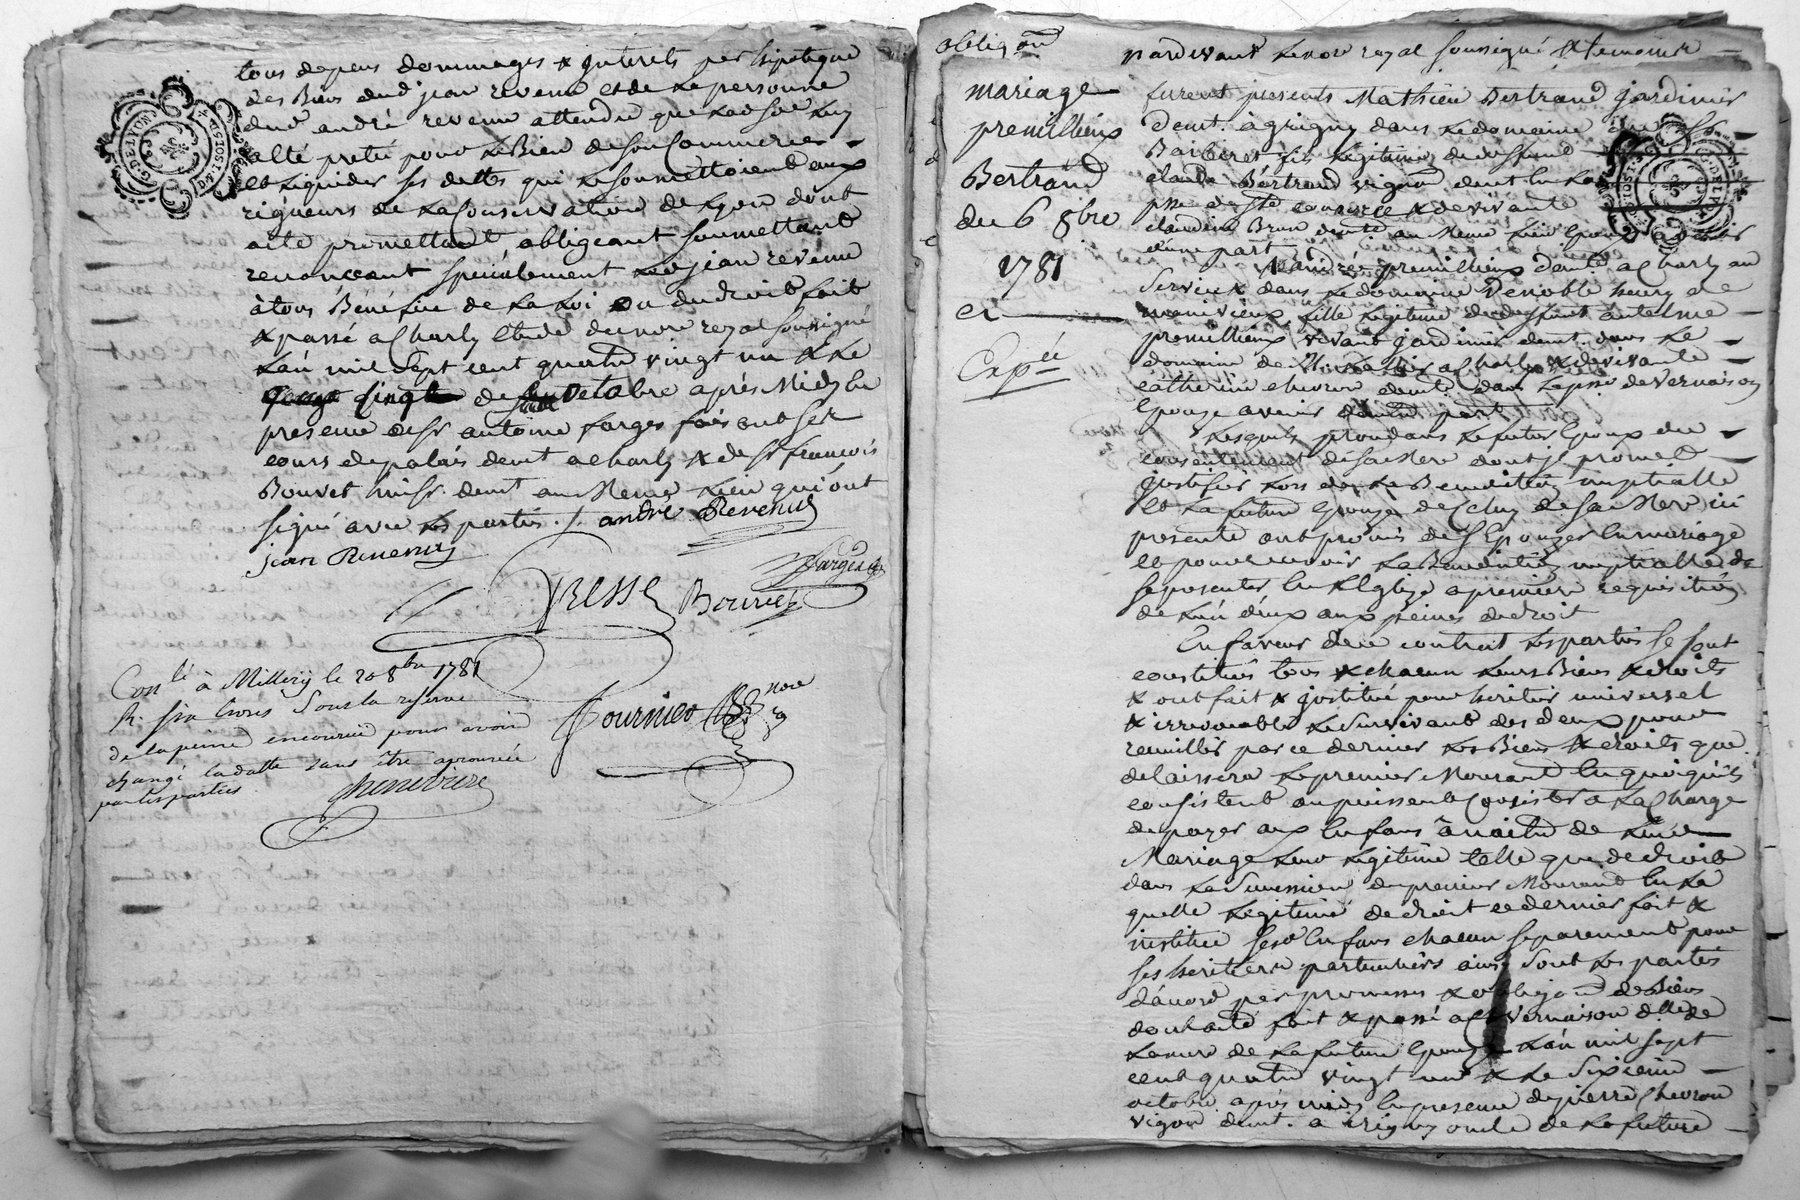 tous depens dommages & interets par hipoteque
des Biens dud jean revenu et de la personne
dud andré revenu attendu que lad soe luy
a été preté pour le Bien de son Commerce
et liquider ses dettes qui se soumettoient aux
rigueurs de la Conservation de Lyon dont
acte promettant, obligeant soumettant
renonceant specialement led jean revenu
à tous Bénéfice de la Loi ou du droit fait
& passé a Charly Etude du nore royal soussigné
L'an mil sept cent quatre vingt un & Le
vingt de octobre après Midy En
presence de sr antoine farges faisant ser
cours de palais demt a charly & de sr francois
Bouvet huissr. demt au Meme Lieu qui ont
signé avec les parties ./. andré Revenu
jean Revenu
farges
Presse Bouvet
Conlé à Millery le 20 8bre 1781
R. six livres Sous la reserve
de la peine encourue pour avoir
changé la datte sans être aprouvée
par les parties
Chenevriere
Fournier nore
obligaon
mariage
premillieux
Bertrand
du 6 8bre
1781
et
Expée
pardevant Le nore royal soussigné & temoins
furent presents Mathieu Bertrand jardinier
demt. à grigny dans le domaine du sr
Barberet fils Legitime de deffunt
claude Bertrand vigon demt en La
psse de ste & de vivante
claudine Brun demte au Meme Lieu Epoux avenir
d'une part
& andrée premillieux demte a Charly au
Service dans le domaine de noble henry de
fille Legitime de deffunt antelme
premillieux vivant jardinier demt. dans Le
domaine de a Charly & de vivante
catherine chevron demte dans La psse de Vernaison
Epouze avenir d'autre part
Lesquels procedans Le futur Epoux du
consentement de sa Mere dont il promet
justifier Lors de La Benediction nuptialle
et La future Epouze de Celuy de sa Mere ici
presente ont promis de s'Epouzer En mariage
et pour recevoir La Benediction nuptialle de
se presenter En L'Eglize a premiere requisition
de L'un d'eux aux peines de droit
En faveur de ce contrat Les parties se sont
constitués tous & chacun Leurs Biens & droits
& ont fait & institué pour heritier universel
& irrevocable Le Survivant des deux pour
recueillir par ce dernier Les Biens & droits que
delaissera Le premier Mourant En quoi qu'ils
consistent ou puissent Consister a La Charge
de payer aux Enfans à naitre de Leur
Mariage Leur Legitime telle que de droit
dans La Succession du premier Mourant En La
quelle Legitime de droit ce dernier fait &
institue sesd Enfans chacun separement pour
ses heritiers particuliers ainsi sont Les parties
d'accord par promesses & obligaon de Biens
dont acte fait & passé a Vernaison d.lle de
La mere de La future Epouze L'an mil sept
cent quatre vingt un & Le Sixieme
octobre après midy En presence de pierre Chevron
vigon demt. a irigny oncle de La future